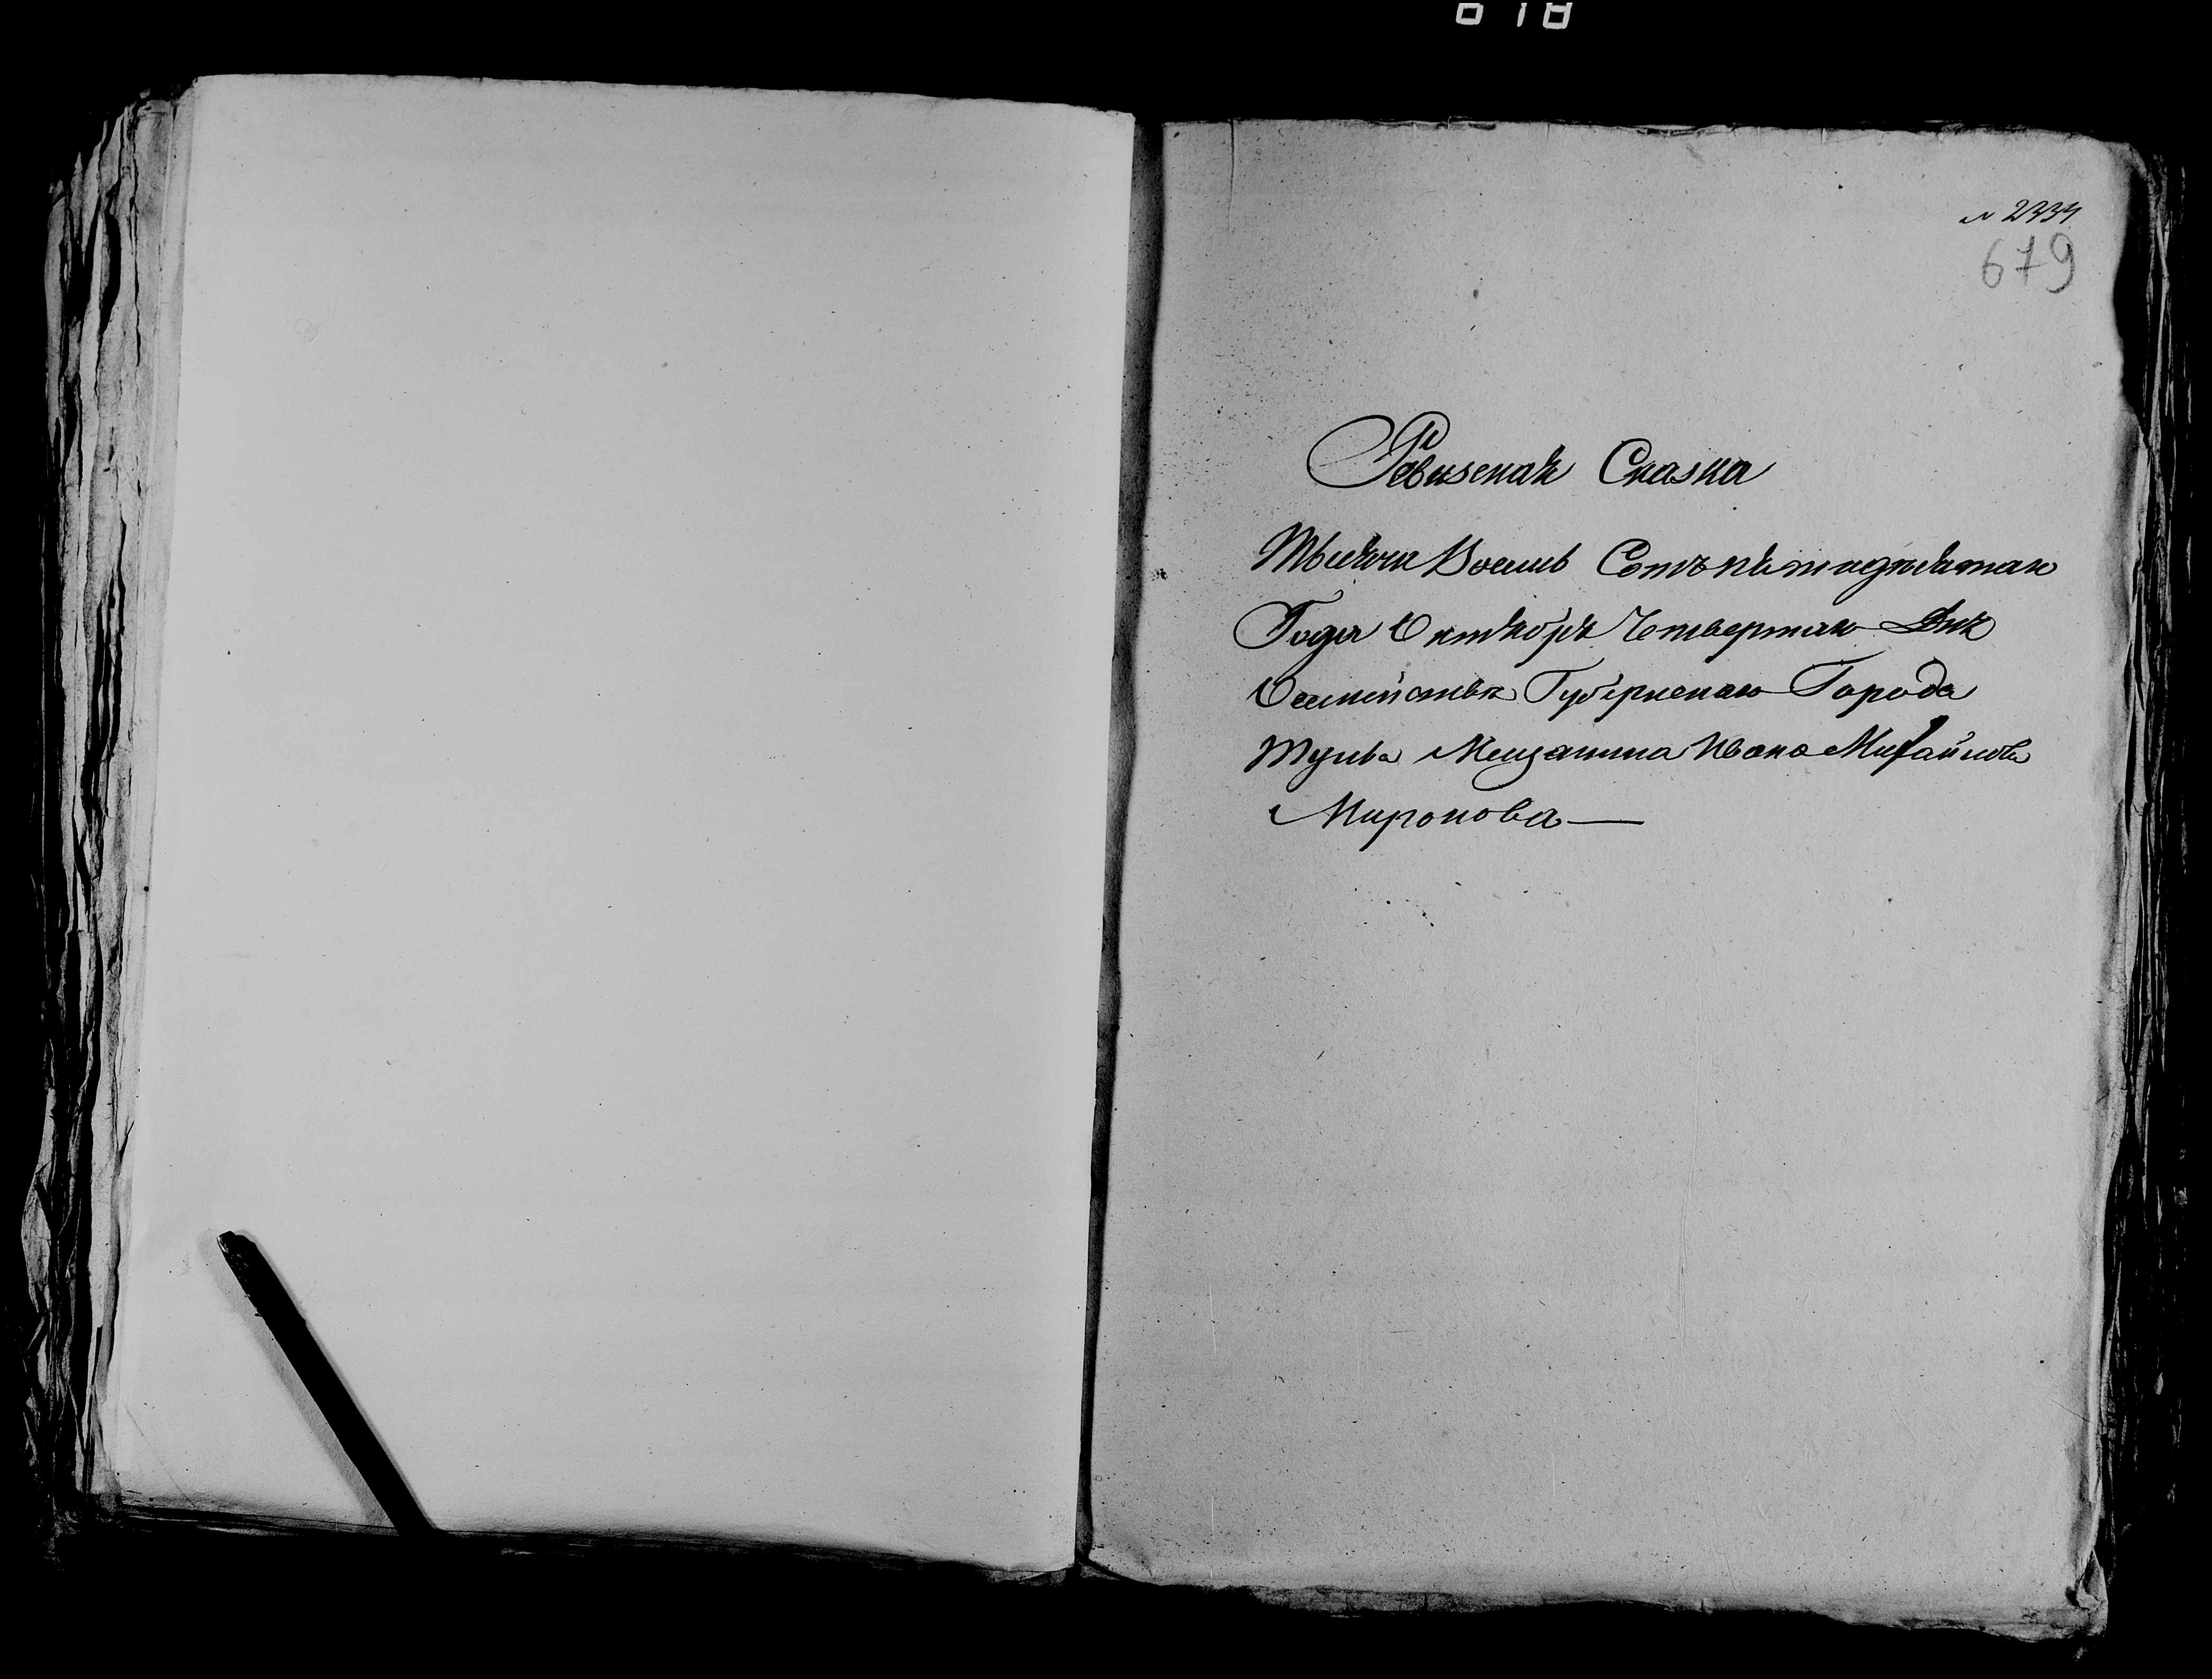 № 2334
679
Ревизская Сказка
Тысяча Восемь Сотъ пятидесятаго
Года Октября Четвертаго Дня
О семействе Губернскаго Города
Тулы Мещанина Ивана Михайлова
Миронова